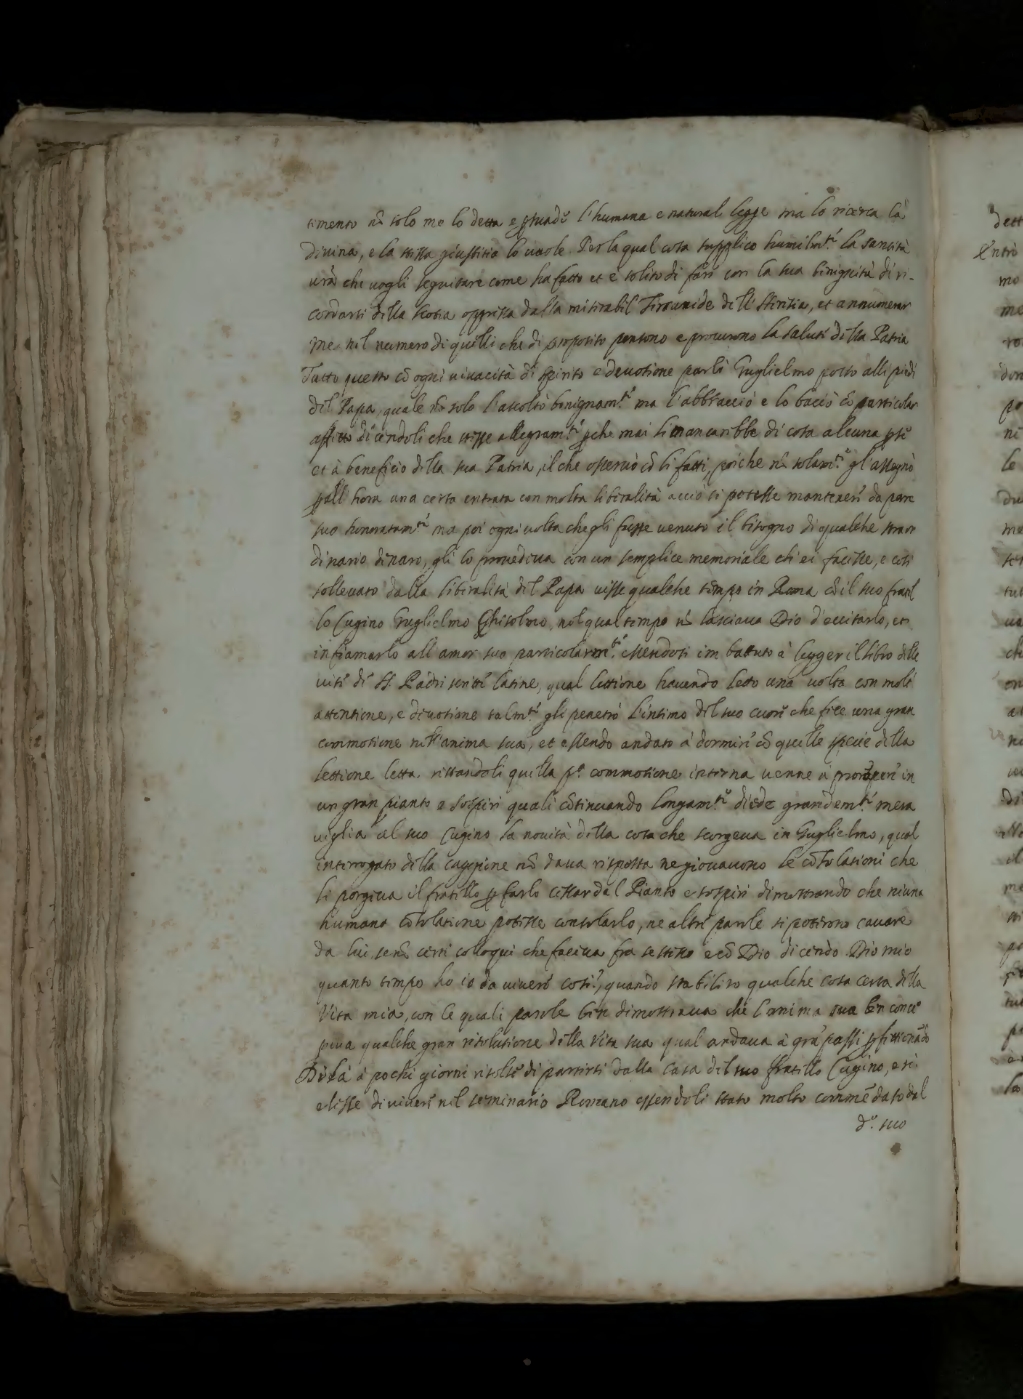 timento nõ solo me lo detta e p̱suade l'humana e natural legge ma lo ricerca la
Divina, e la stessa giustitia lo vuole. Per la qual cosa supplico humilmte la santità
vrã che vogli seguitare come ha fatto et è solito di fare con la sua benignità di ri-
cordarsi della Scotia oppressa dalla miserabil Tirannide dell'Heresia, et annumerar
me nel numero di quelli che di proposito pensono e procurono la salute della Patria
Tutto questo cõ ogni vivacità di spirito e devotione parlò Guglielmo posto alli piedi
del Papa, quale nõ solo l'ascoltò benignamte ma l'abbracciò e lo baciò cõ particular
affetto dicendoli che stesse allegramte p̱che mai li mancaribbe di cosa alcuna p̱ se
et à beneficio della sua Patria, il che osservò cõ li fatti, poiche nõ solamte gl'assegnò
p̱ all'hora una certa entrata con molta liberalità acciò si potesse mantenere da pare
suo honoratamte ma poi ogni volta che gli fusse venuto il bisogno di qualche straor
dinario dinaro, gli lo provedeva con un semplice memoriale ch'ei facesse, e cosi
sollevato dalla liberalità del Papa visse qualche tempo in Roma cõ il suo fratel
lo Cugino Guglielmo Chisolmo, nel qual tempo nõ lasciava Dio d'eccitarlo, et
infiamarlo all'amor suo particolarmte essendosi imbattuto à legger il libro delle
vite de SS. Padri scritte latine, qual lettione havendo letto una volta con molta
attentione, e divotione talmte gli penetrò l'intimo del suo cuore che fece una gran
commotione nell'anima sua, et essendo andato à dormire cõ quelle specie della
lettione letta. restandoli quella pa commotione interna venne à prorõper in
un gran pianto e sospiri quali cõtinuando longamte diede grandemte mera
viglia al suo Cugino la novità della cosa che scorgeva in Guglielmo, qual
interrogato della caggione nõ dava risposta ne giovavono le cõsolationi che
li porgeva il fratello p̱ farlo cessar dal Pianto e sospiri dimostrando che niuna
humana cõsolatione potesse consolarlo, ne altre parole si poterono cavare
da lui senõ certi colloqui che faceva fra se stesso e cõ Dio dicendo Dio mio
quanto tempo ho io da vivere cosi?, quando stabiliro qualche cosa certa della
Vita mia, con le quali parole ben dimostrava che l'anima sua ben conce
peva qualche gran risolutione della Vita sua qual andava à grã passi
Di là à pochi giorni risolse di partirsi dalla Casa del suo fratello Cugino, e si
elesse di vivere nel seminario Romano essendoli stato molto commẽdato dal
do suo